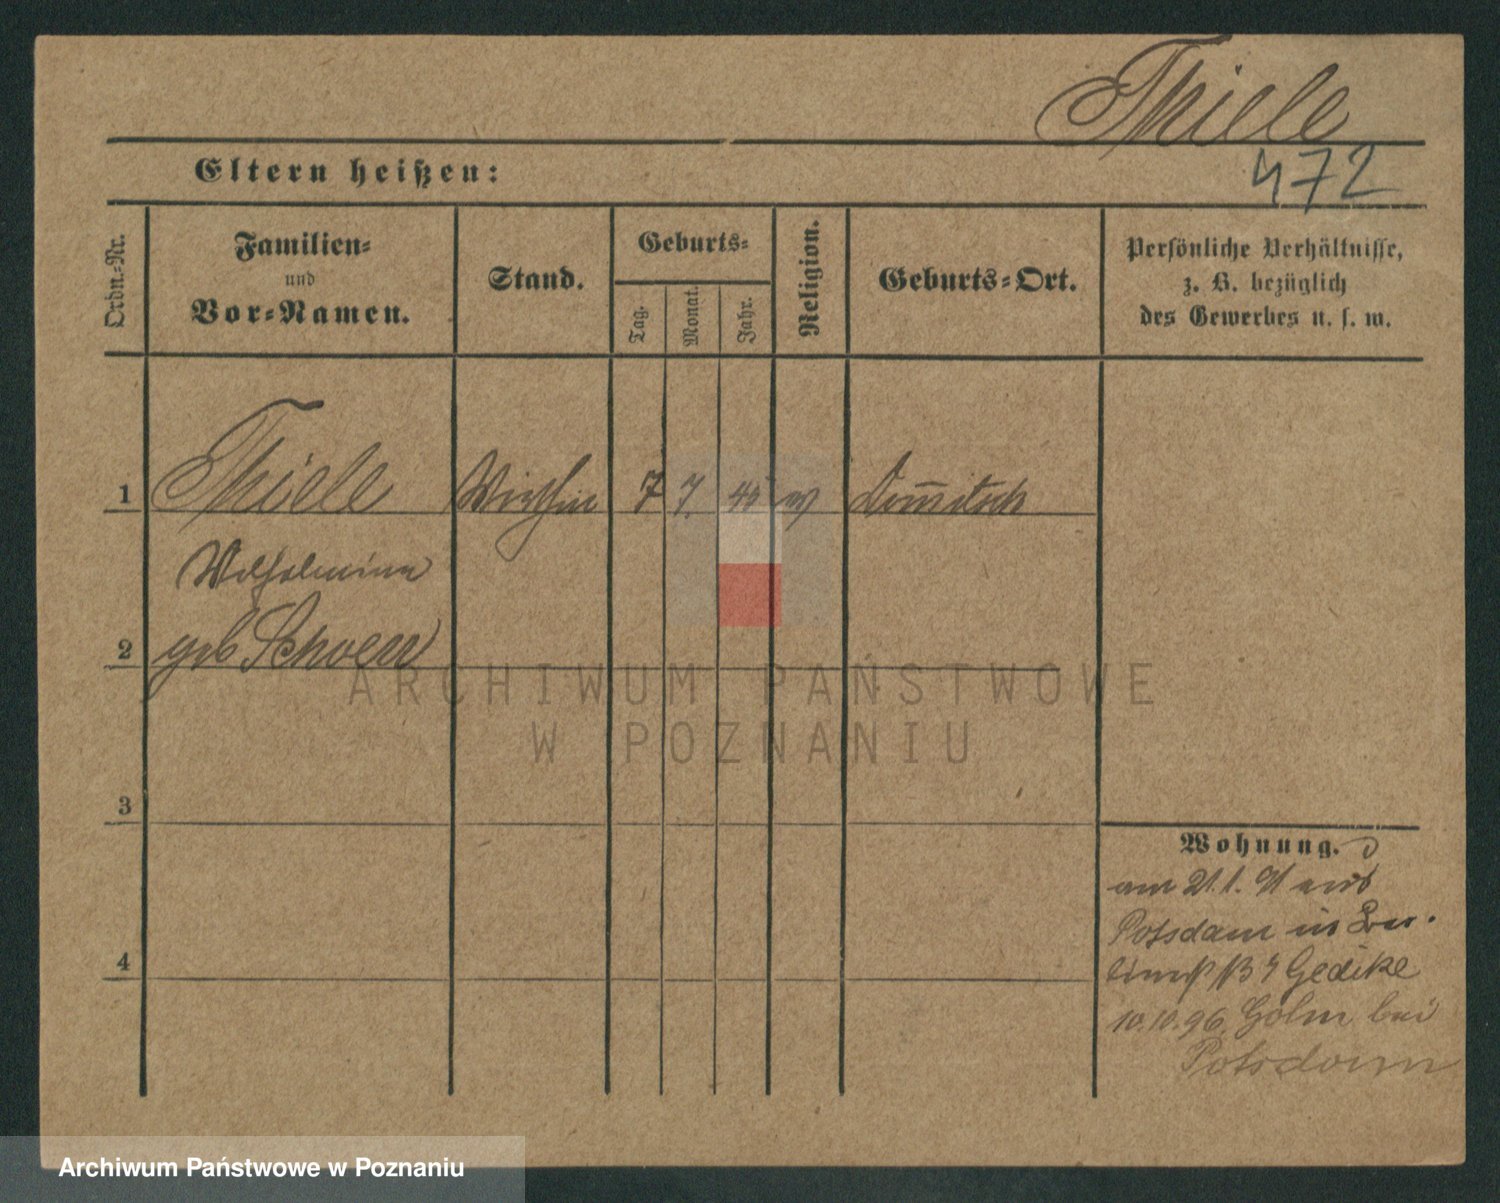 Thiele
Eltern heißen:
472
Ordn.-Nr.
Familien-
und
Vor-Namen.
Stand.
Geburts-
Tag.
Monat.
Jahr.
Religion.
Geburts-Ort.
Persönliche Verhältnisse,
z. B. bezüglich
des Gewerbes u. s. w.
1 Thiele Wirthin 7 7. 45 Dommitsch
Wilhelmine
2 geb
3
Wohnung.
am 21.1.91 aus
Potsdam in Ber-
Gedike
4
10.10.96. Golm bei
Potsdam
ARCHIWUM PAŃSTWOWE
W POZNANIU
Archiwum Państwowe w Poznaniu